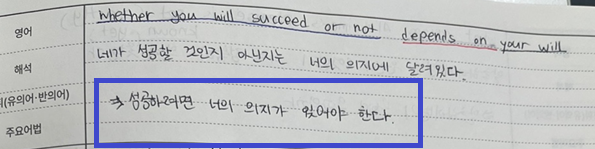 영어
whether you will succeed or not depends on your will
해석
네가 성공할 것인지 아닌지는 너의 의지에 달려있다.
(유의어·반의어)
→ 성공하려면 너의 의지가 있어야 한다.
주요어법